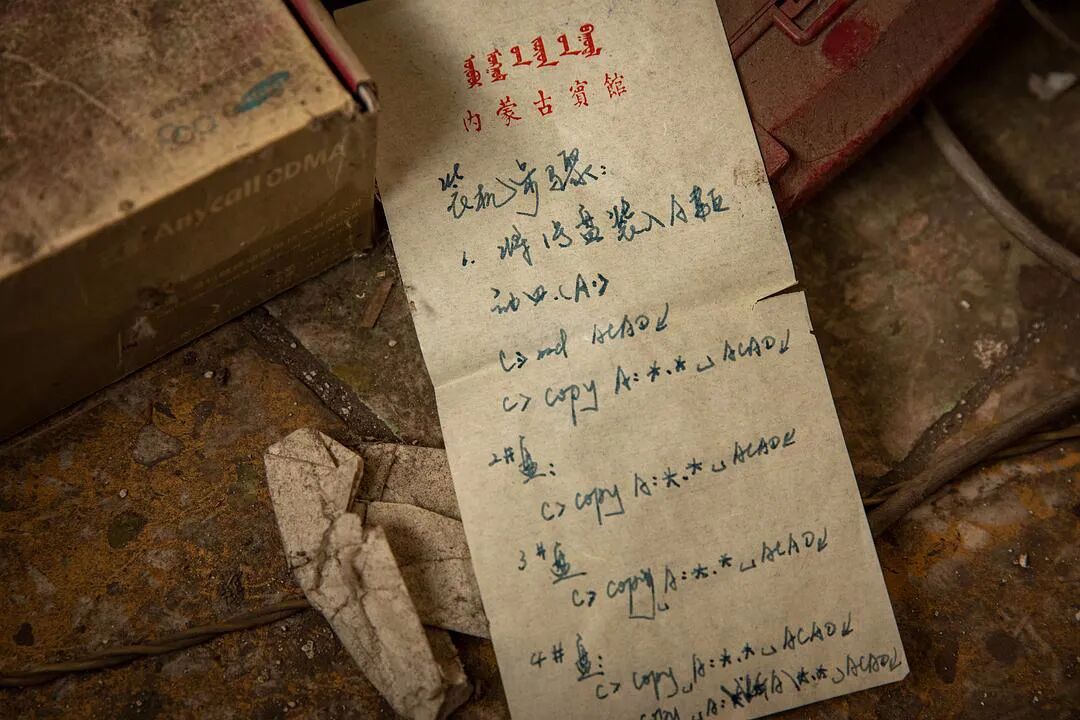 Anycall CDMA
内蒙古賓館
装机步骤:
1. 将1#盘装入A驱
动四.(A:)
C> md ACAD↙
C> copy A: *.* ␣ ACAD↙
2#盘:
C> copy A: *.* ␣ ACAD↙
3#盘
C> copy A: *.* ␣ ACAD↙
4#盘:
C> copy␣A: *.* ␣ ACAD↙
copy␣A: \*.* ␣ ACAD↙